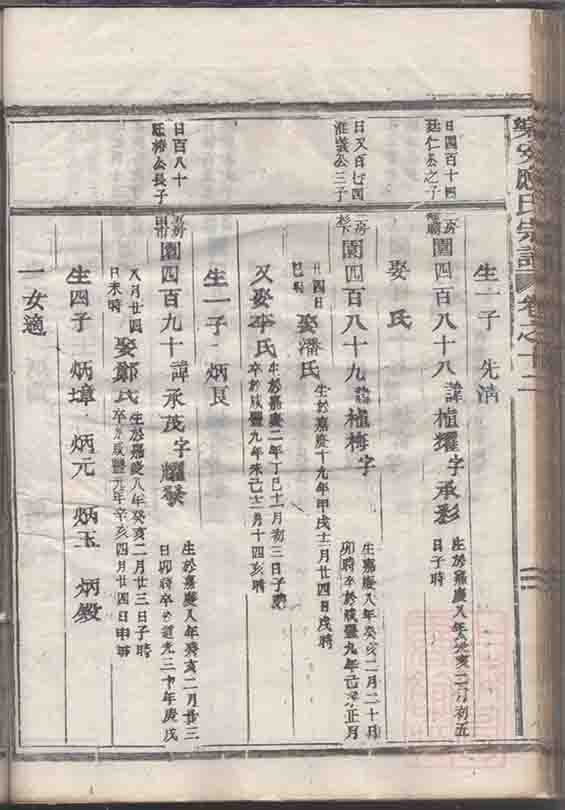 應氏宗譜 卷之十二
生一子 先清
日四百十四
廷仁公之子
房
園四百八十八 諱植耀 字承彩
生於嘉慶八年癸亥二月初五
日子時
娶 氏
日又百七四
淮議公三子
房
園四百八十九 諱植梅 字
生嘉慶八年癸亥二月二十日
卯時卒於咸豐九年己未正月
廿四日
時 娶潘氏 生於嘉慶十九年甲戌十二月廿四日戌時
又娶李氏
生於嘉慶二年丁巳十一月初三日子時
卒於咸豐九年未己十二月十四亥時
生一子 炳良
日百八十
公長子
房
園四百九十 諱承茂 字耀發
生於嘉慶八年癸亥二月廿三
日卯時卒於道光三十年庚戌
八月廿四
日未時 娶鄭氏
生於嘉慶八年癸亥二月廿三日子時
卒於咸豐元年辛亥四月廿四日申時
生四子 炳璋 炳元 炳玉 炳毅
一女適